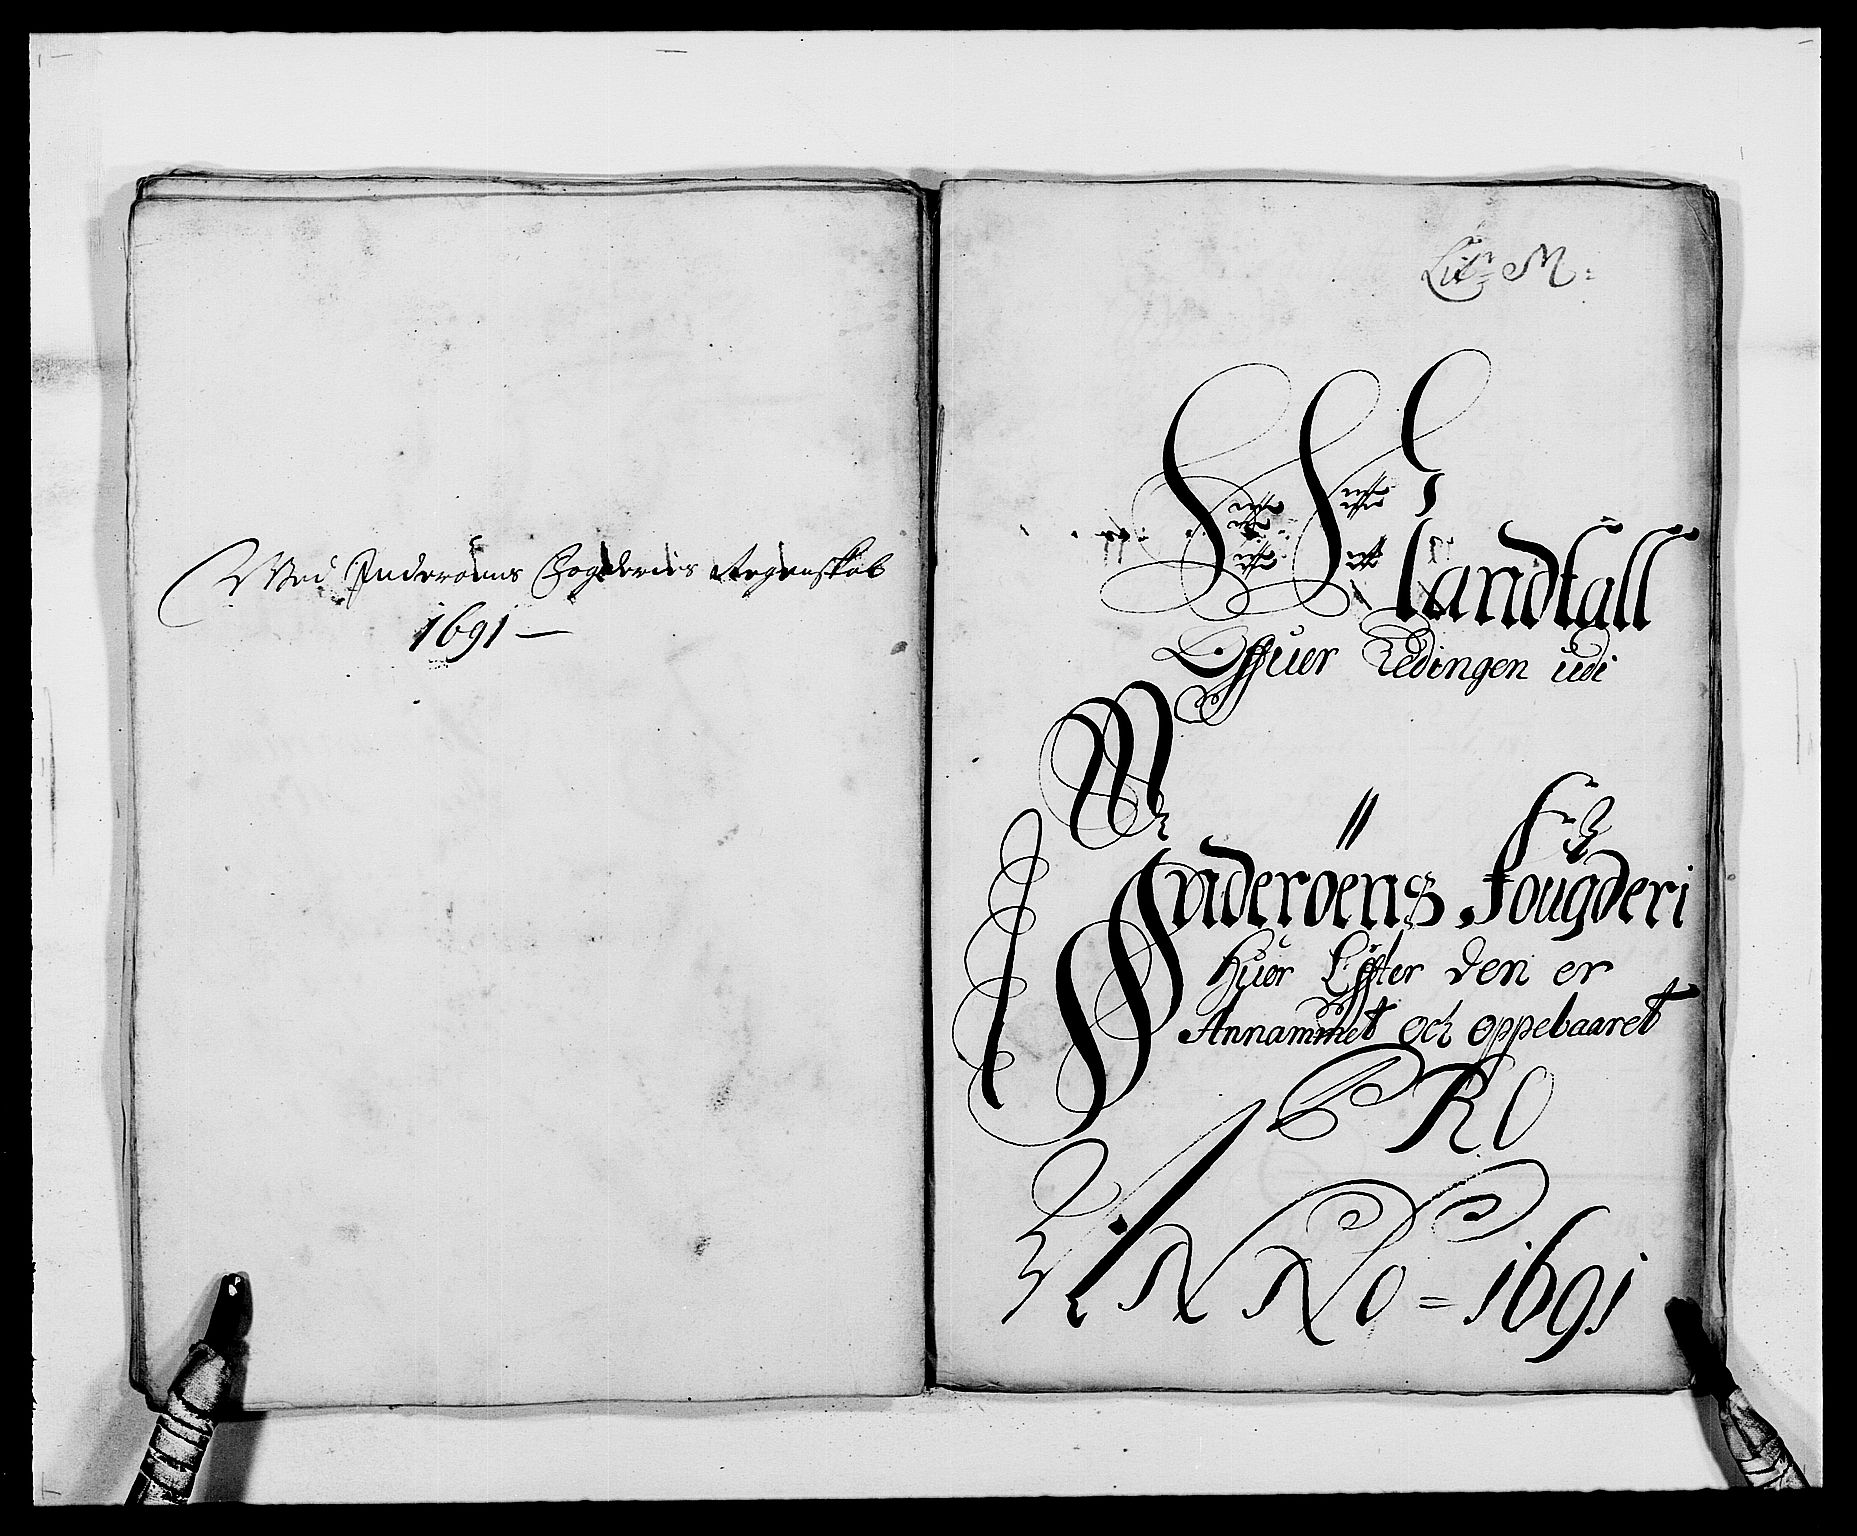 Med Inderøens Fogderies Regenskab
1691 —
Litr M:
Landtall
Offuer Ledingen udi
Inderøens Fougderi
Huor Effter den er
Annammet och oppebaaret
PRO
ANNO = 1691